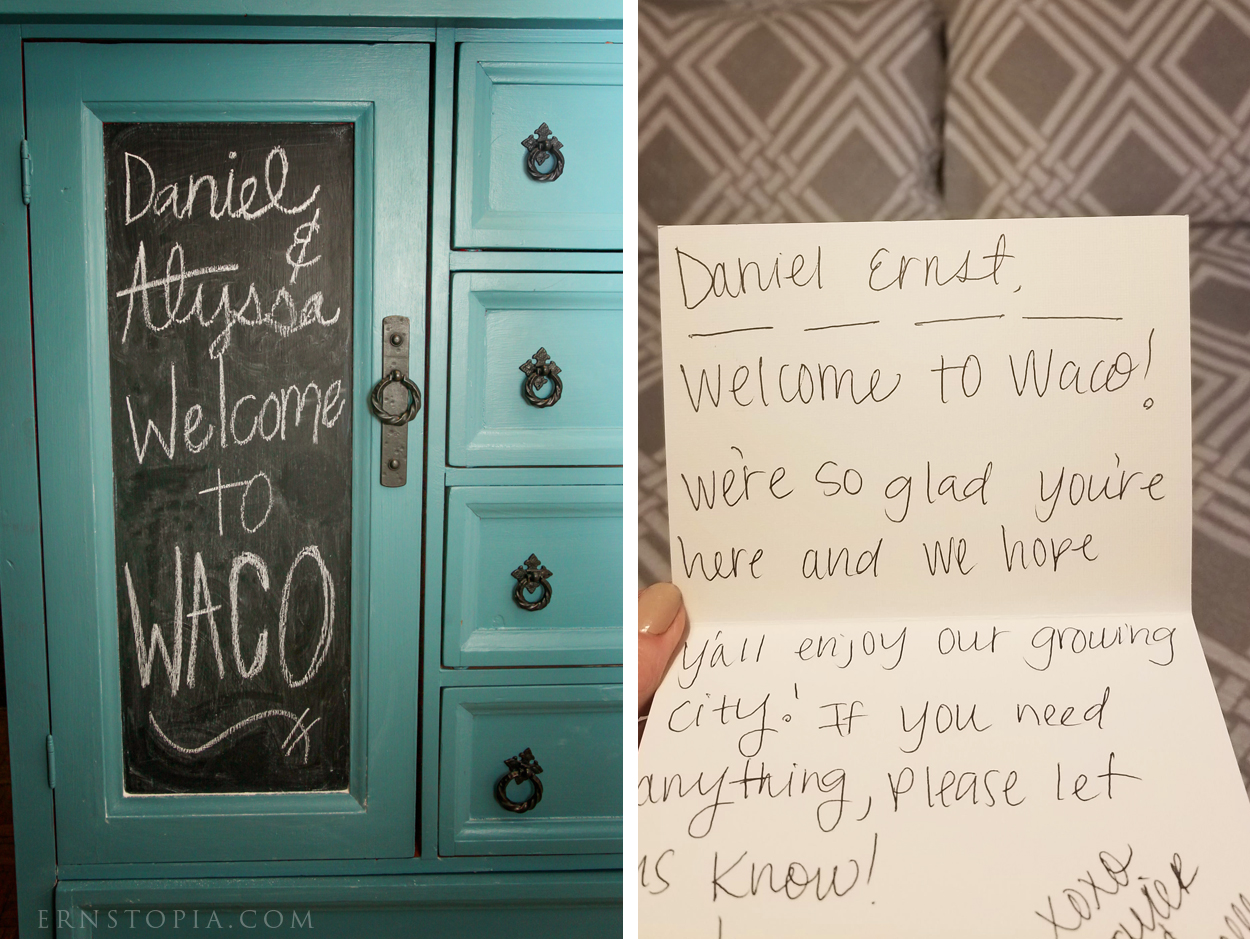 Daniel
&
Alyssa
Welcome
to
WACO
ERNSTOPIA.COM
Daniel Ernst,
Welcome to Waco!
we're so glad you're
here and we hope
y'all enjoy our growing
city! If you need
anything, please let
us know!
xoxo